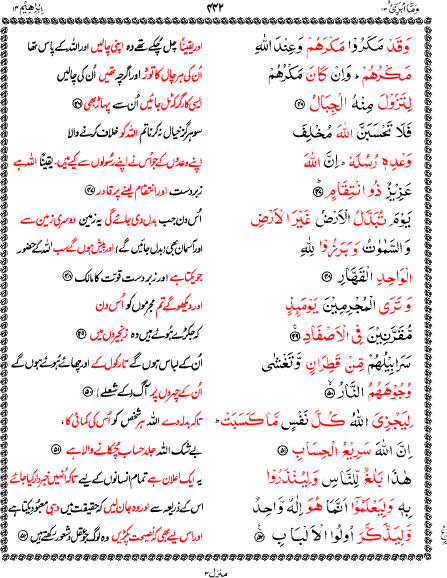 وَمَآ اُبَرِّئُ ۱۳
۴۴۲
اِبْرٰهِيْم ۱۴
وَقَدْ مَكَرُوْا مَكْرَهُمْ وَعِنْدَ اللّٰهِ
مَكْرُهُمْ ؕ وَاِنْ كَانَ مَكْرُهُمْ
لِتَزُوْلَ مِنْهُ الْجِبَالُ ۴۶
فَلَا تَحْسَبَنَّ اللّٰهَ مُخْلِفَ
وَعْدِهٖ رُسُلَهٗ ؕ اِنَّ اللّٰهَ
عَزِيْزٌ ذُو انْتِقَامٍ ۴۷
يَوْمَ تُبَدَّلُ الْاَرْضُ غَيْرَ الْاَرْضِ
وَالسَّمٰوٰتُ وَبَرَزُوْا لِلّٰهِ
الْوَاحِدِ الْقَهَّارِ ۴۸
وَتَرَى الْمُجْرِمِيْنَ يَوْمَئِذٍ
مُّقَرَّنِيْنَ فِى الْاَصْفَادِ ۴۹
سَرَابِيْلُهُمْ مِّنْ قَطِرَانٍ وَّتَغْشٰى
وُجُوْهَهُمُ النَّارُ ۵۰
لِيَجْزِىَ اللّٰهُ كُلَّ نَفْسٍ مَّا كَسَبَتْ ؕ
اِنَّ اللّٰهَ سَرِيْعُ الْحِسَابِ ۵۱
هٰذَا بَلٰغٌ لِّلنَّاسِ وَلِيُنْذَرُوْا
بِهٖ وَلِيَعْلَمُوْٓا اَنَّمَا هُوَ اِلٰهٌ وَّاحِدٌ
وَّلِيَذَّكَّرَ اُولُوا الْاَلْبَابِ ۵۲
اور یقیناً چل چکے تھے وہ اپنی چالیں اور اللہ کے پاس تھا
اُن کی ہر چال کا توڑ اور اگرچہ تھیں اُن کی چالیں
ایسی کارگر کہ ٹل جائیں اُن سے پہاڑ بھی ۴۶
سو ہرگز خیال نہ کرنا تم اللہ کو خلاف کرنے والا
اپنے وعدوں کے جو اس نے اپنے رسولوں سے کیے ہیں۔ یقیناً اللہ ہے
زبردست اور انتقام لینے پر قادر ۴۷
اُس دن جب بدل دی جائے گی یہ زمین دوسری زمین سے
اور آسمان بھی (بدل جائیں گے) اور پیش ہوں گے سب اللہ کے حضور
جو یکتا ہے اور زبردست قوت کا مالک ۴۸
اور دیکھو گے تم مجرموں کو اُس دن
کہ جکڑے ہوئے ہیں وہ زنجیروں میں ۴۹
اُن کے لباس ہوں گے تارکول کے اور چھائے ہوئے ہوں گے
اُن کے چہروں پر آگ (کے شعلے) ۵۰
تاکہ بدلہ دے اللہ ہر شخص کو اُس کی کمائی کا،
بے شک اللہ جلد حساب چکانے والا ہے ۵۱
یہ ایک اعلان ہے تمام انسانوں کے لیے تاکہ اُنہیں خبردار کیا جائے
اس کے ذریعہ سے اور وہ جان لیں کہ حقیقت میں وہی معبود یکتا ہے
اور اس لیے بھی کہ نصیحت پکڑیں وہ لوگ جو عقل و شعور رکھتے ہیں ۵۲
منزل ۳